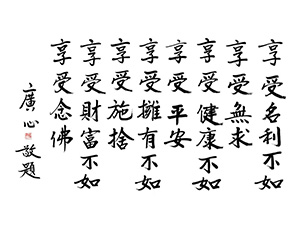 享受名利不如
享受無求
享受健康不如
享受平安
享受擁有不如
享受施捨
享受財富不如
享受念佛
廣心敬題